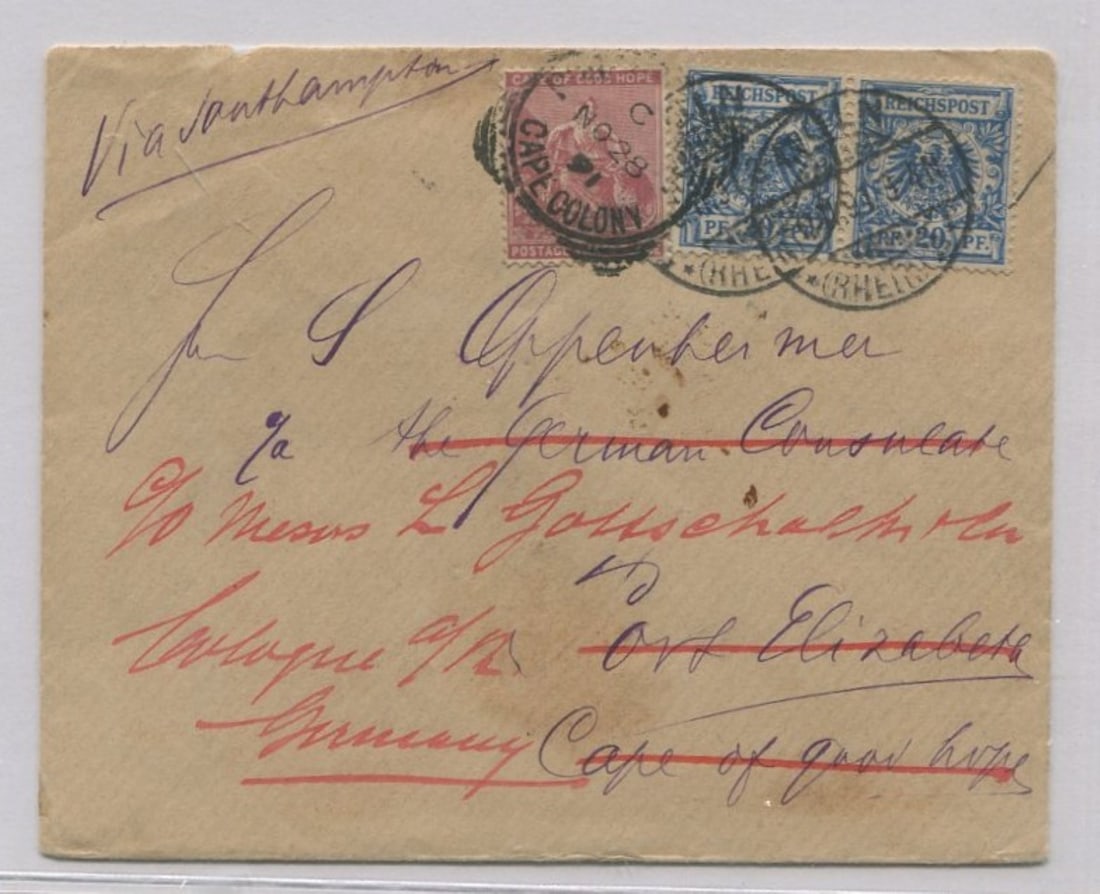 Via Southampton
CAPE OF GOOD HOPE
POSTAGE
C
NO 28
91
CAPE COLONY
REICHSPOST
PF. 20 PF.
REICHSPOST
PF. 20 PF.
(RHEIN)
(RHEIN)
S Oppenheimer
c/o the German Consulate
c/o Messrs L Gottschalk
Port Elizabeth
Cologne a/R
Germany
Cape of good hope